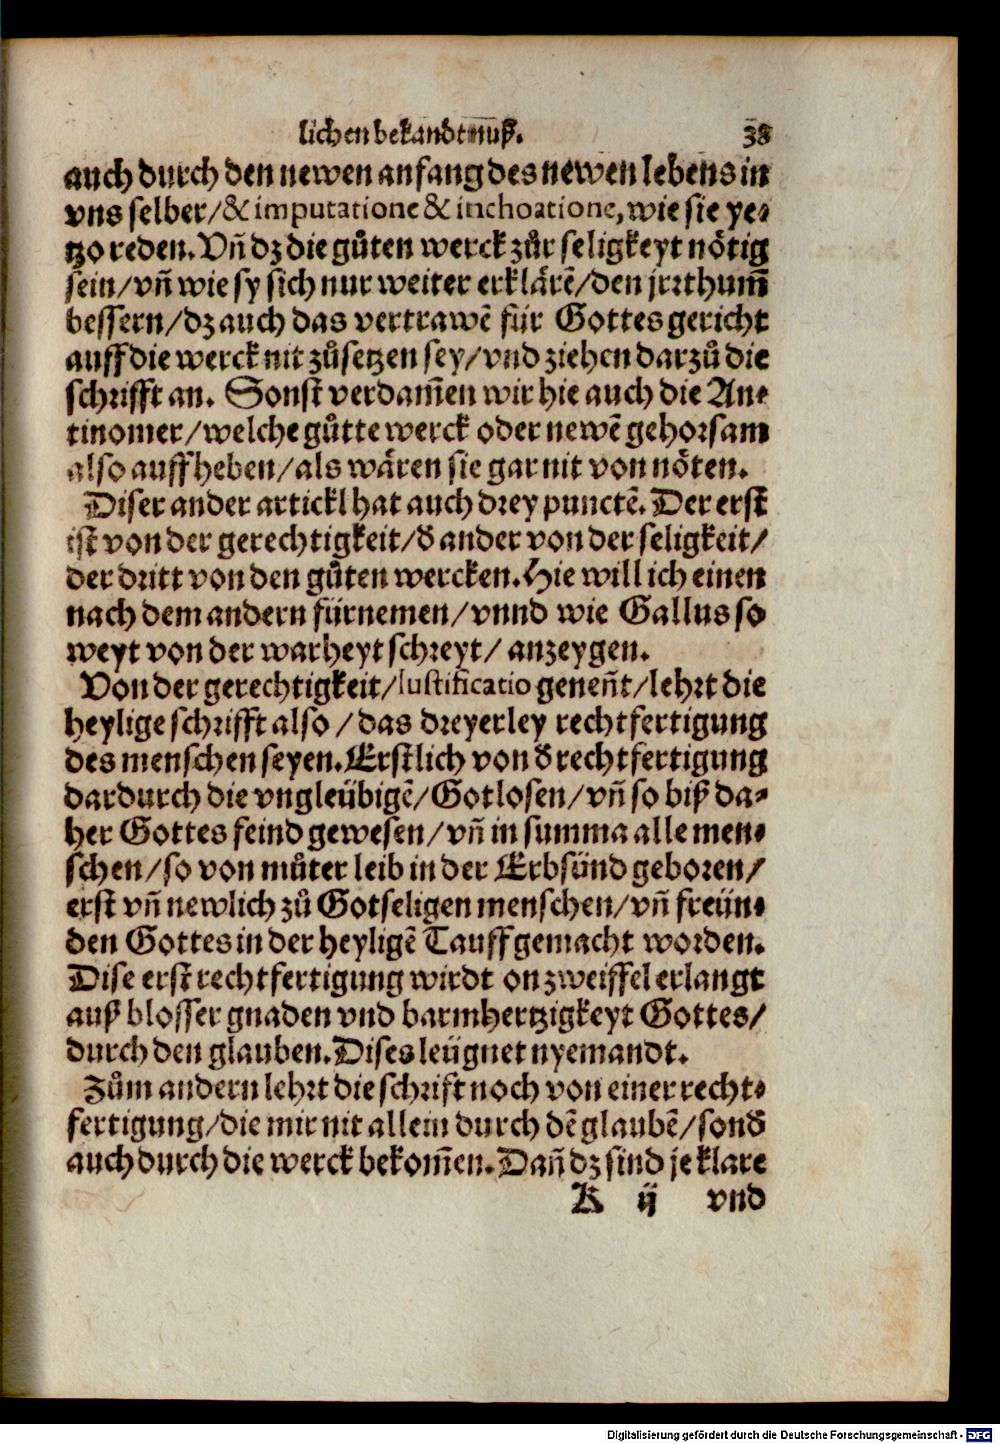 lichen bekandtnuß. 38
auch durch den newen anfang des newen lebens in
vns selber/& imputatione & inchoatione, wie sie ye⸗
tzo reden. Vñ dz die gůten werck zůr seligkeyt nötig
sein/vñ wie sy sich nur weiter erklärē/den jrrthum̃
bessern/dz auch das vertrawē für Gottes gericht
auff die werck nit zůsetzen sey/vnd ziehen darzů die
schrifft an. Sonst verdam̃en wir hie auch die An⸗
tinomer/welche gůtte werck oder newē gehorsam
also auffheben/als wären sie gar nit von nöten.
Diser ander artickl hat auch drey punctē. Der erst
ist von der gerechtigkeit/đ ander von der seligkeit/
der dritt von den gůten wercken. Hie will ich einen
nach dem andern fürnemen/vnnd wie Gallus so
weyt von der warheyt schreyt/ anzeygen.
Von der gerechtigkeit/Iustificatio geneñt/lehrt die
heylige schrifft also/das dreyerley rechtfertigung
des menschen seyen. Erstlich von đ rechtfertigung
dardurch die vngleübigē/Gotlosen/vñ so biß da⸗
her Gottes feind gewesen/vñ in summa alle men⸗
schen/so von můter leib in der Erbsünd geboren/
erst vñ newlich zů Gotseligen menschen/vñ freün⸗
den Gottes in der heyligē Tauff gemacht worden.
Dise erst rechtfertigung wirdt on zweiffel erlangt
auß blosser gnaden vnd barmhertzigkeyt Gottes/
durch den glauben. Dises leügnet nyemandt.
Zům andern lehrt die schrift noch von einer recht⸗
fertigung/die mir nit allein durch dē glaubē/sonđ
auch durch die werck bekom̃en. Dañ dz sind je klare
K ij vnd
Digitalisierung gefördert durch die Deutsche Forschungsgemeinschaft - DFG